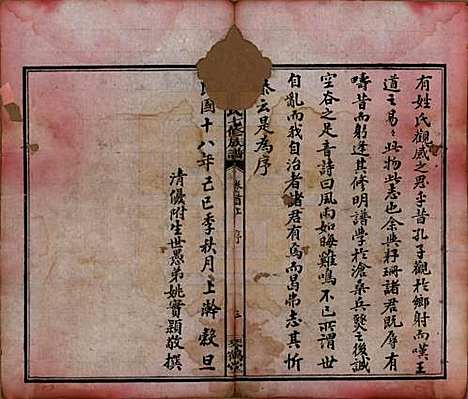 有姓氏觀感之思乎昔孔子觀於鄉射而嘆王
道之易々此物此志也余與籽珊諸君既辱有
疇昔而躬逢其修明譜學於滄桑兵燹之後誠
空谷之足音詩曰風雨如晦雞鳴不已所謂世
自亂而我自治者諸君有焉而昌弗志其忻
慕云是為序
民國十八年己巳季秋月上澣穀旦
清優附生世愚弟姚實穎敬撰
氏七修族譜
卷首上
序
三